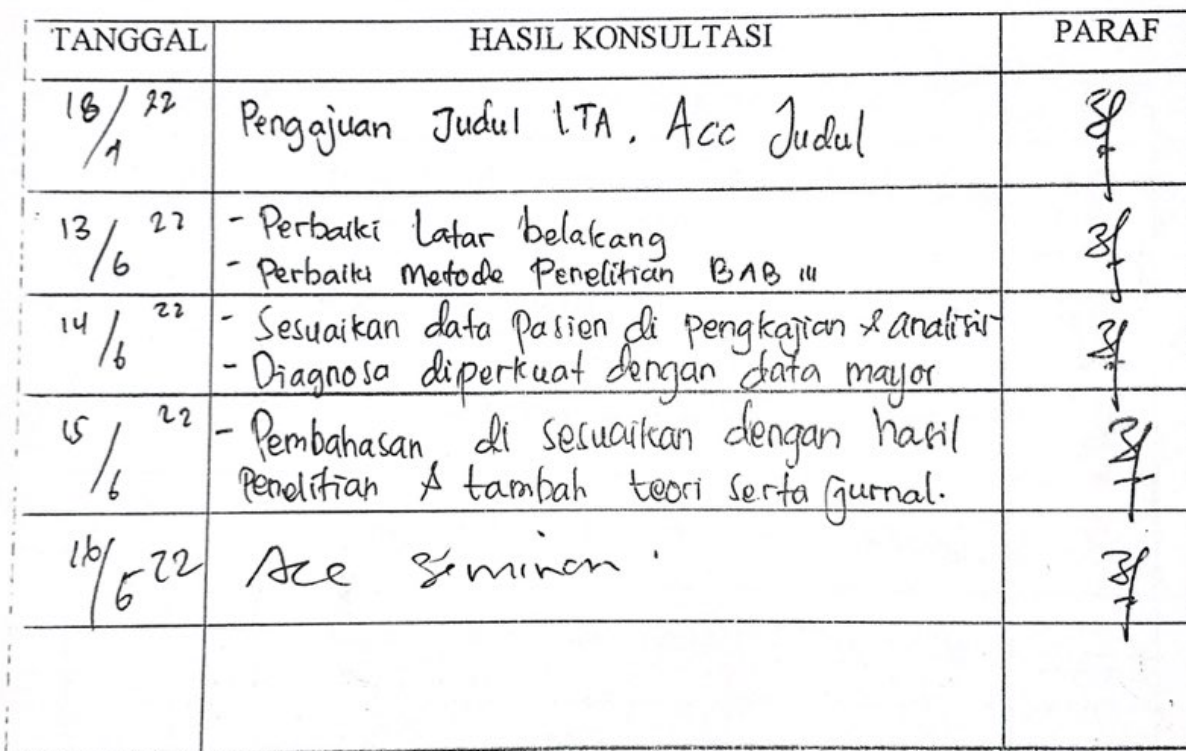 TANGGAL HASIL KONSULTASI PARAF
18/1 22 Pengajuan Judul LTA. Acc Judul
13/6 22 - Perbaiki Latar belakang
- Perbaiki Metode Penelitian BAB III
14/6 22 - Sesuaikan data Pasien di pengkajian & analisis
- Diagnosa diperkuat dengan data mayor
15/6 22 - Pembahasan di sesuaikan dengan hasil
Penelitian & tambah teori serta jurnal.
16/6 22 Acc Seminar